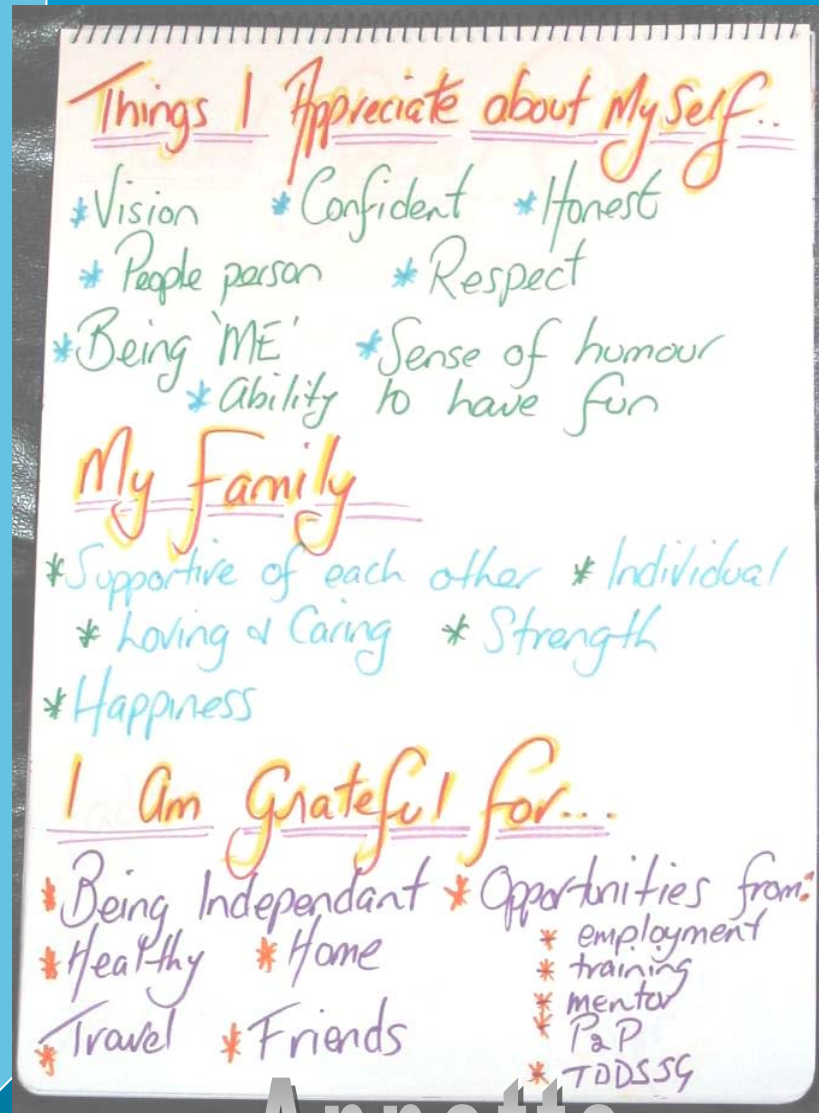 Things I Appreciate about MySelf..
*Vision *Confident *Honest
* People person * Respect
*Being 'ME' *Sense of humour
* ability to have fun
My Family
*Supportive of each other * Individual
* Loving & Caring * Strength
*Happiness
I Am Grateful for...
*Being Independant * Opportunities from:
*Healthy *Home
* employment
* training
* mentor
*Travel *Friends
* P2P
* TDDSSG
Annette